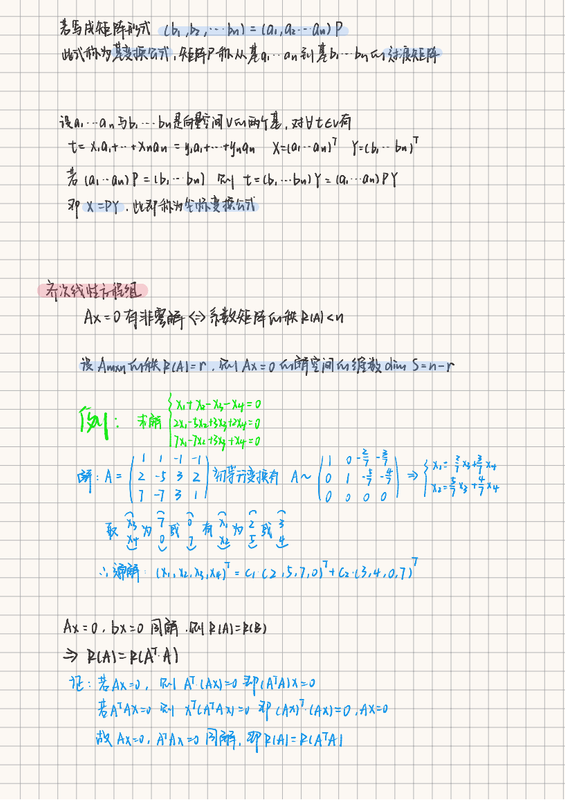 若写成矩阵形式 (b₁,b₂,⋯bₙ)=(a₁,a₂⋯aₙ)P
此式称为基变换公式,矩阵P称从基a₁⋯aₙ到基b₁⋯bₙ的过渡矩阵
设a₁⋯aₙ与b₁⋯bₙ是向量空间V的两个基,对∀t∈V有
t=x₁a₁+⋯+xₙaₙ=y₁a₁+⋯+yₙaₙ X=(a₁⋯aₙ)ᵀ Y=(b₁⋯bₙ)ᵀ
若(a₁⋯aₙ)P=(b₁⋯bₙ) 则 t=(b₁⋯bₙ)Y=(a₁⋯aₙ)PY
即X=PY.此即称为坐标变换公式
齐次线性方程组
Ax=0有非零解⇔系数矩阵的秩R(A)<n
设Aₘₓₙ的秩R(A)=r,则Ax=0的解空间的维数dim S=n-r
例: 求解 { x₁+x₂-x₃-x₄=0
2x₁-5x₂+3x₃+2x₄=0
7x₁-7x₂+3x₃+x₄=0
解:A= ( 1 1 -1 -1 初等行变换有 A~ ( 1 0 -2/7 -3/7 ⇒ { x₁=2/7x₃+3/7x₄
2 -5 3 2 0 1 -5/7 -4/7 x₂=5/7x₃+4/7x₄
7 -7 3 1 ) 0 0 0 0 )
取 (x₃ x₄) 为 (7 0) 或 (0 7) 有 (x₁ x₂) 为 (2 5) 或 (3 4)
∴通解:(x₁,x₂,x₃,x₄)ᵀ=c₁(2,5,7,0)ᵀ+c₂·(3,4,0,7)ᵀ
Ax=0,bx=0同解.则R(A)=R(B)
⇒R(A)=R(Aᵀ·A)
证:若Ax=0,则Aᵀ·(Ax)=0即(AᵀA)x=0
若AᵀAx=0则xᵀ(AᵀAx)=0即(Ax)ᵀ·(Ax)=0,Ax=0
故Ax=0,AᵀAx=0同解,即R(A)=R(AᵀA)